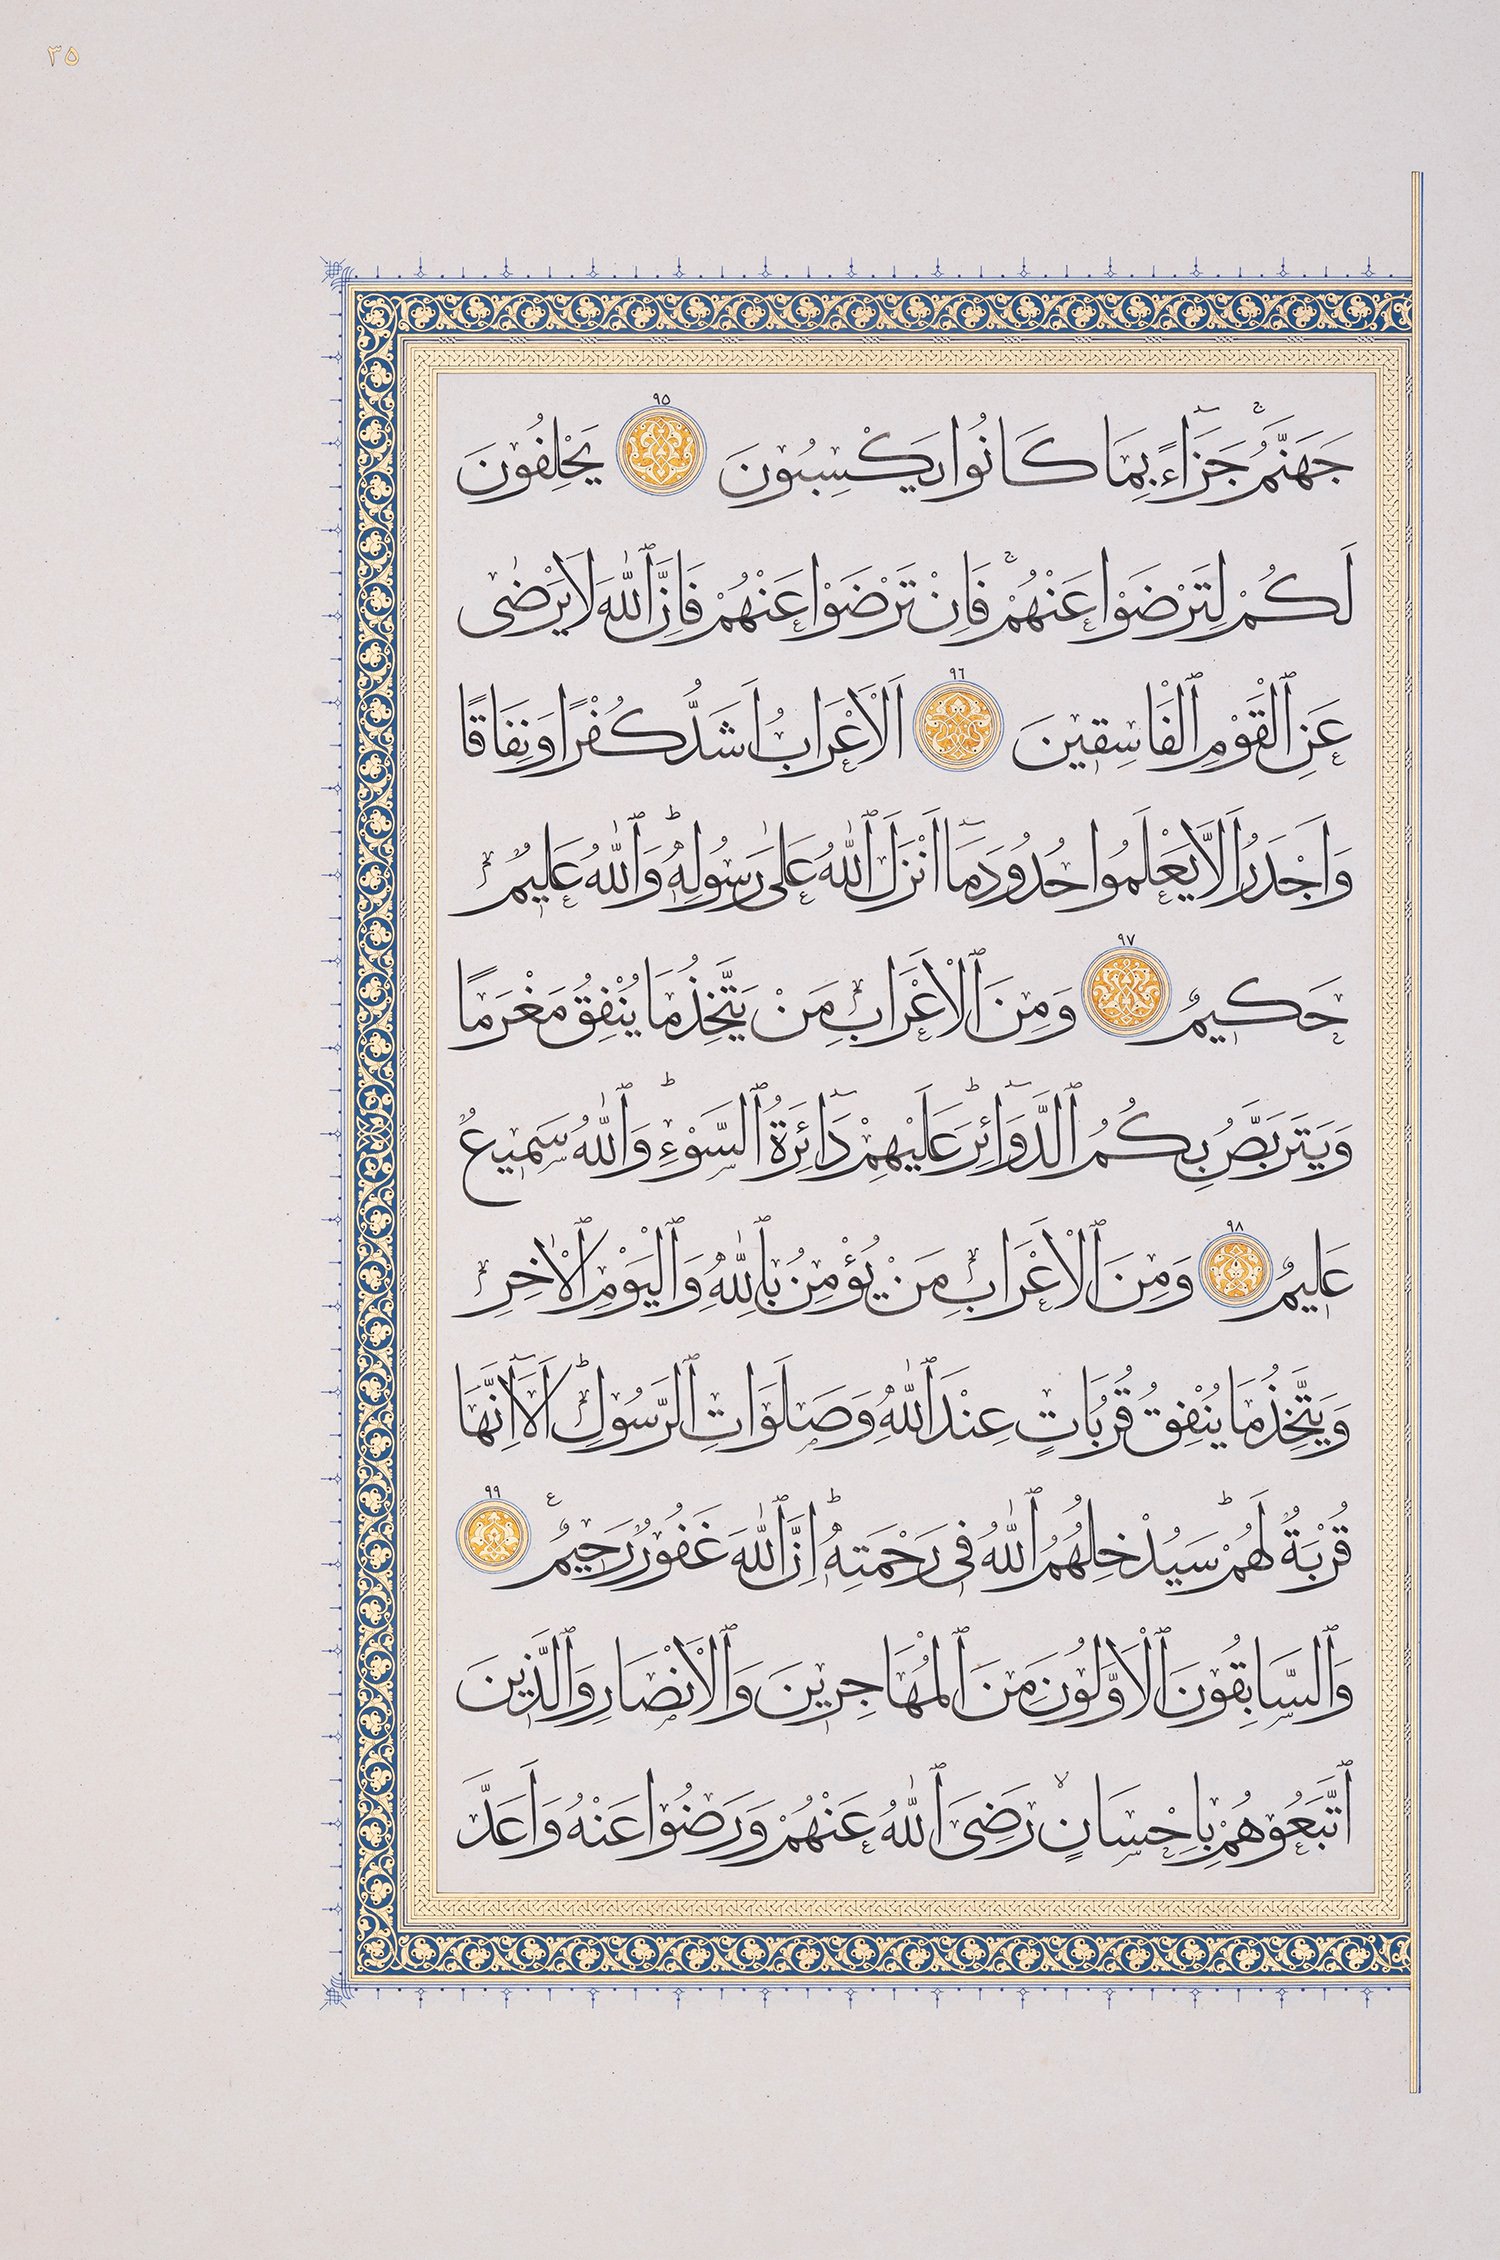 ٣٥
جَهَنَّمُۚ جَزَٓاءً بِمَا كَانُوا يَكْسِبُونَ ٩٥ يَحْلِفُونَ
لَكُمْ لِتَرْضَوْا عَنْهُمْۚ فَاِنْ تَرْضَوْا عَنْهُمْ فَاِنَّ ٱللّٰهَ لَا يَرْضٰى
عَنِ ٱلْقَوْمِ ٱلْفَاسِقِينَ ٩٦ اَلْاَعْرَابُ اَشَدُّ كُفْرًا وَنِفَاقًا
وَاَجْدَرُ اَلَّا يَعْلَمُوا حُدُودَ مَٓا اَنْزَلَ ٱللّٰهُ عَلٰى رَسُولِهِۜ وَٱللّٰهُ عَلِيمٌ
حَكِيمٌ ٩٧ وَمِنَ ٱلْاَعْرَابِ مَنْ يَتَّخِذُ مَا يُنْفِقُ مَغْرَمًا
وَيَتَرَبَّصُ بِكُمُ ٱلدَّوَٓائِرَۜ عَلَيْهِمْ دَٓائِرَةُ ٱلسَّوْءِۜ وَٱللّٰهُ سَمِيعٌ
عَلِيمٌ ٩٨ وَمِنَ ٱلْاَعْرَابِ مَنْ يُؤْمِنُ بِٱللّٰهِ وَٱلْيَوْمِ ٱلْاٰخِرِ
وَيَتَّخِذُ مَا يُنْفِقُ قُرُبَاتٍ عِنْدَ ٱللّٰهِ وَصَلَوَاتِ ٱلرَّسُولِۜ اَلَٓا اِنَّهَا
قُرْبَةٌ لَهُمْۜ سَيُدْخِلُهُمُ ٱللّٰهُ فِى رَحْمَتِهِۜ اِنَّ ٱللّٰهَ غَفُورٌ رَحِيمٌ ٩٩
وَٱلسَّابِقُونَ ٱلْاَوَّلُونَ مِنَ ٱلْمُهَاجِرِينَ وَٱلْاَنْصَارِ وَٱلَّذِينَ
ٱتَّبَعُوهُمْ بِاِحْسَانٍۙ رَضِىَ ٱللّٰهُ عَنْهُمْ وَرَضُوا عَنْهُ وَاَعَدَّ